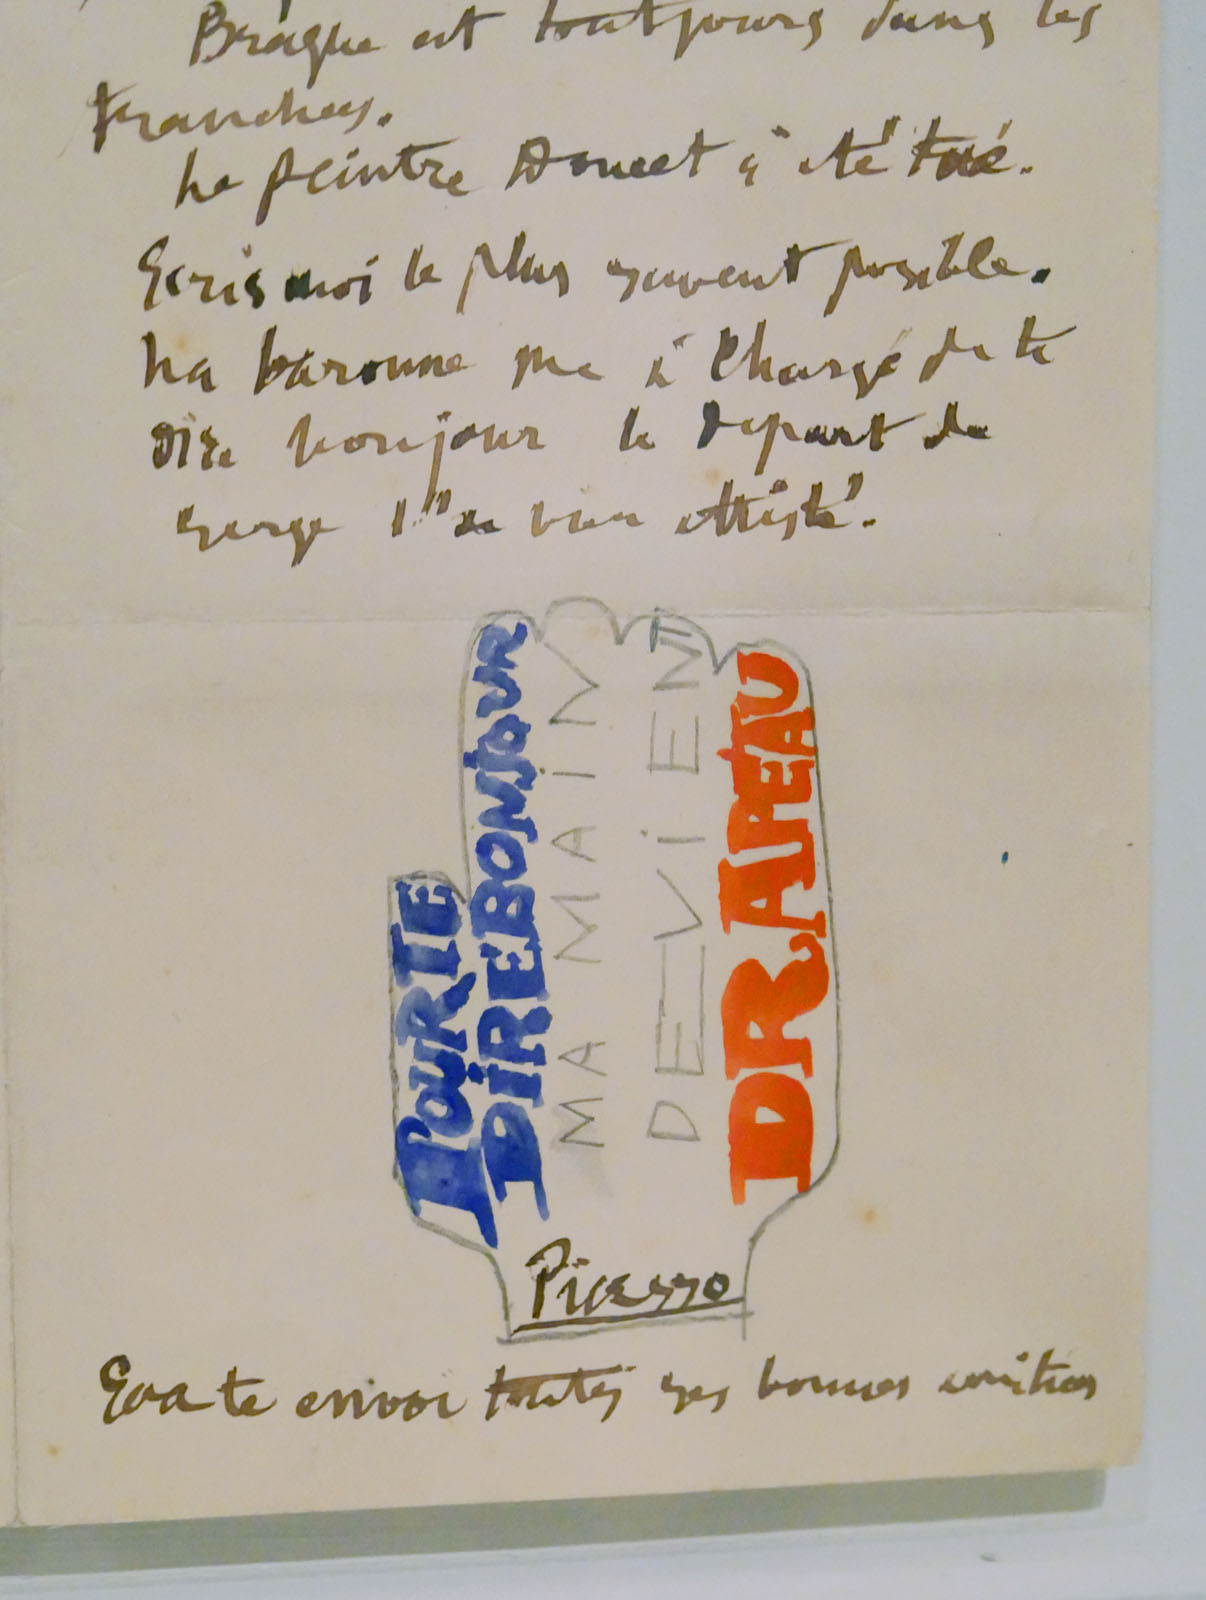 Braque est toutjours dans les
tranchees.
Le peintre Doucet à eté tué.
Ecris moi le plus souvent posible.
La baronne me à chargé de te
dire bonjour le depart de
Serge l'a bien attristé.
POUR TE
DiRE BONjOUR
MA MAiN
DEViENT
DRAPEAU
Picasso
Eva te envoi toutes ses bonnes amities